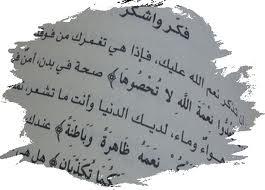 فكّر واشكر
تذكر نعم الله عليك، فإذا هي تغمرك من فوقك
﴿... تَعُدُّوا نِعْمَةَ اللهِ لا تُحْصُوهَا﴾ صحة في بدن، أمن في
هواءٌ وماء، لديك الدنيا وأنت ما تشعر، تملك
نِعَمَهُ ظَاهِرَةً وَبَاطِنَةً﴾ عندك
تُكَذِّبَانِ﴾ هل هي